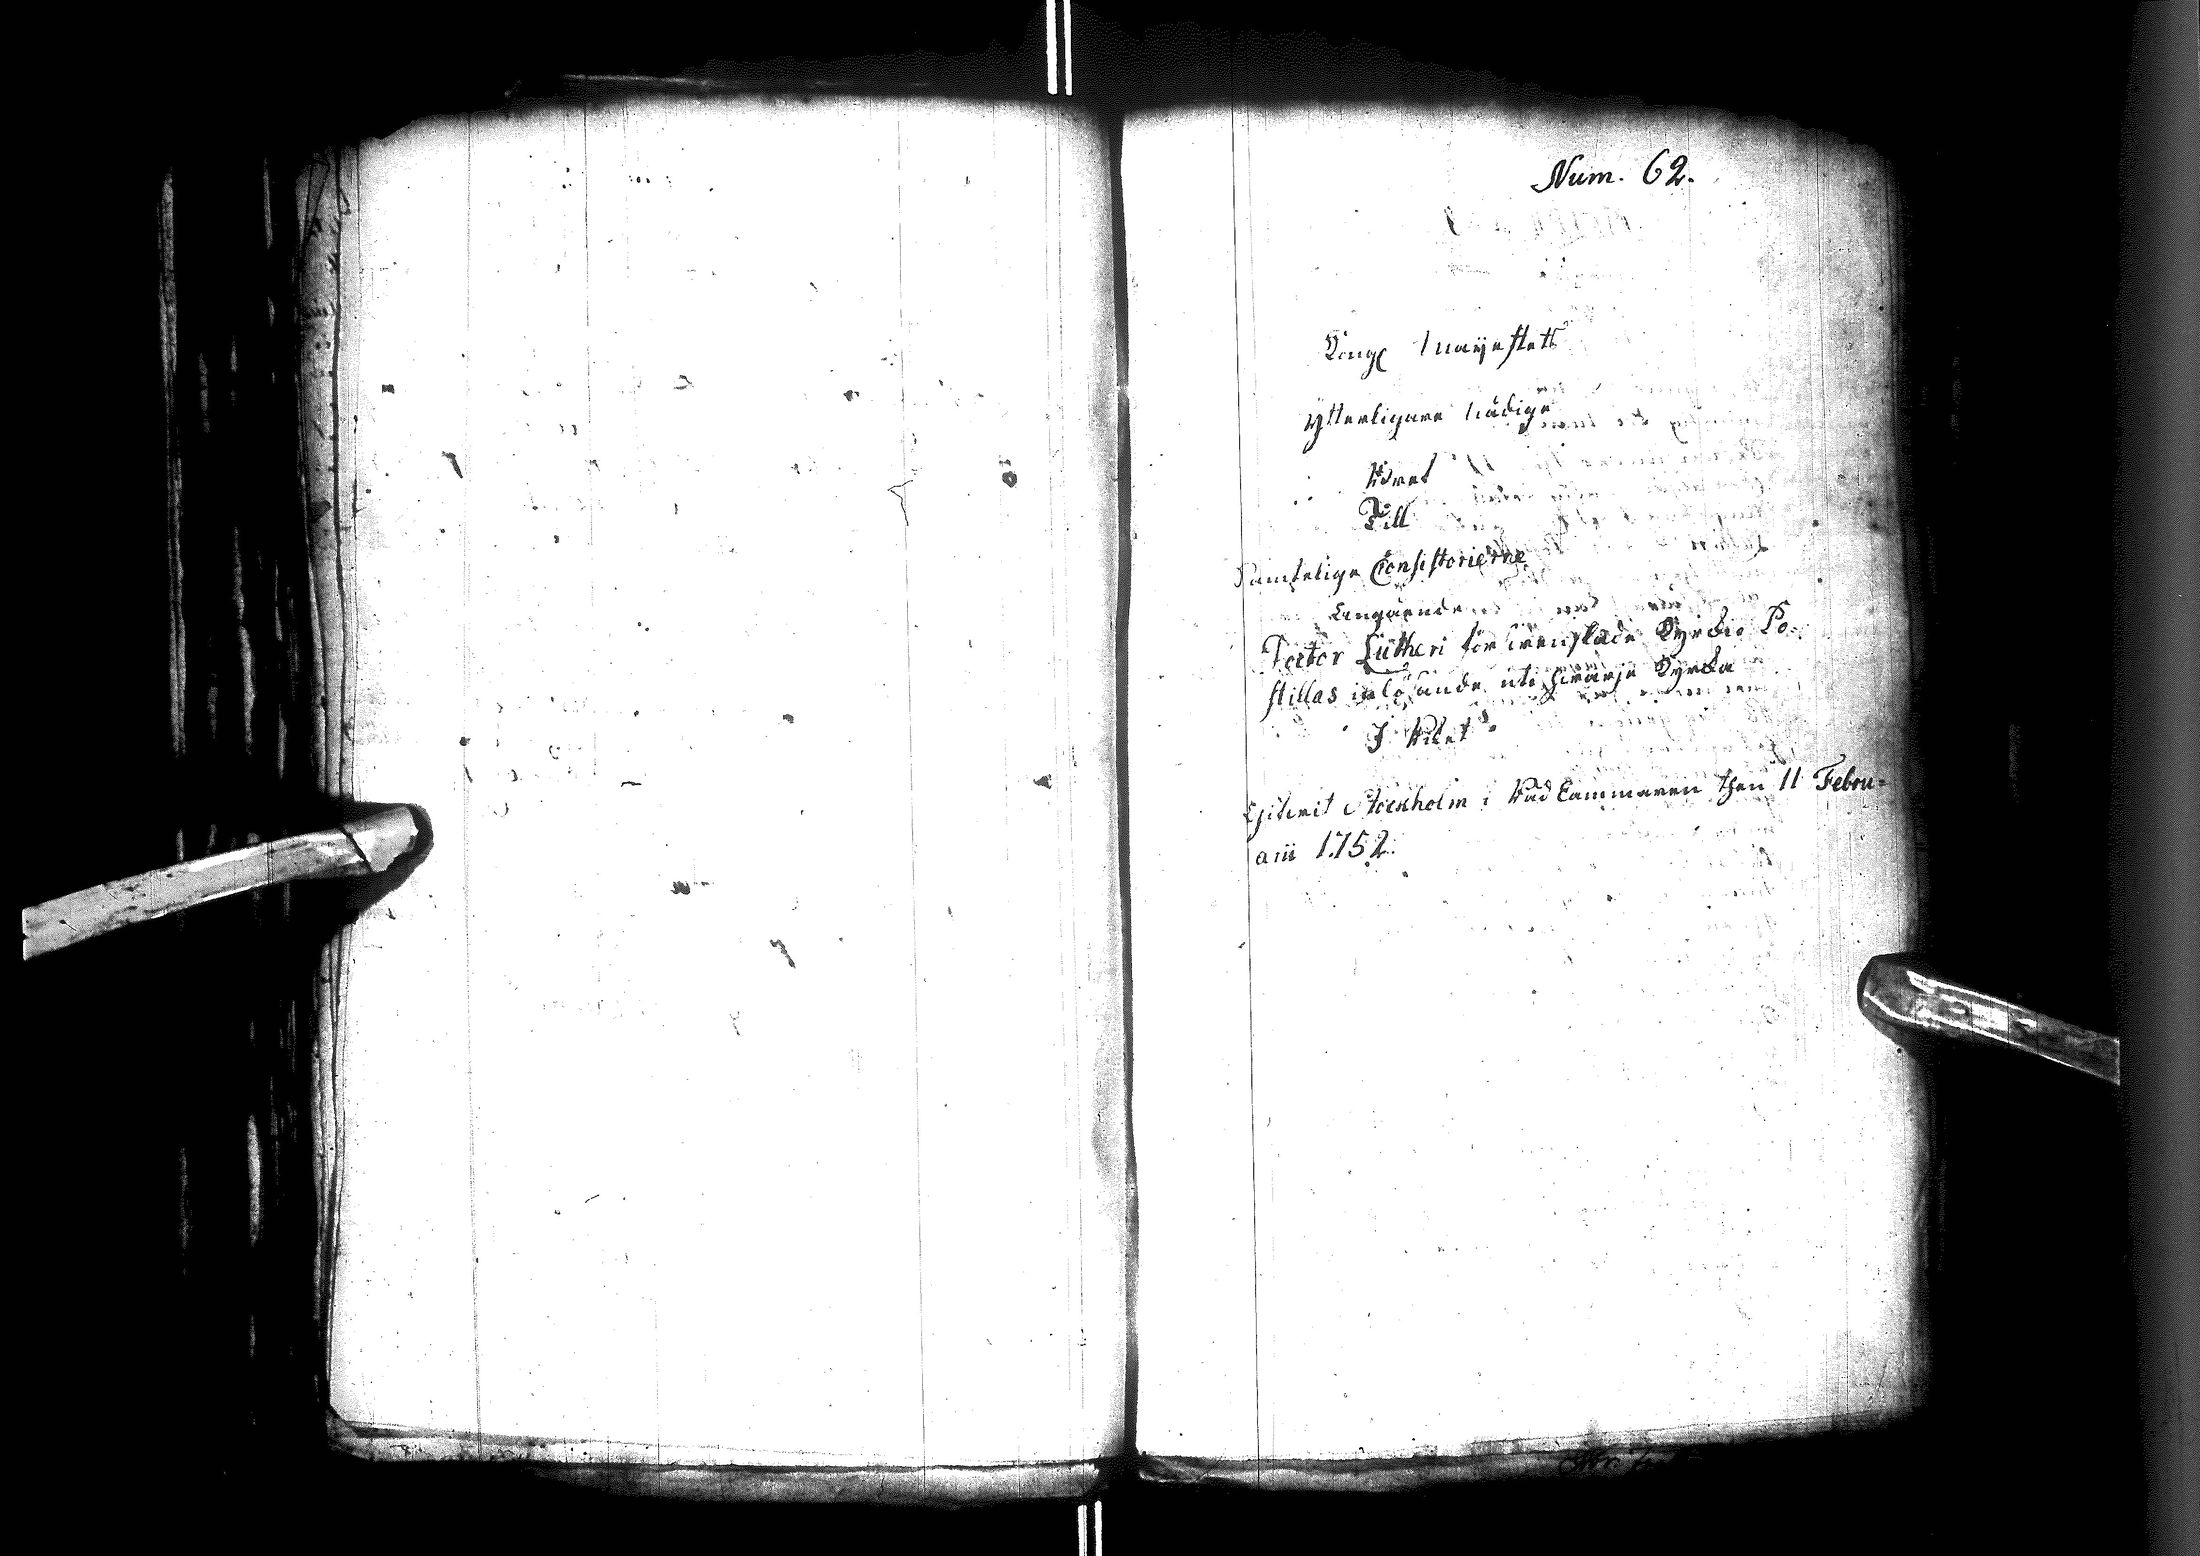 Num. 62.
Kongl Mayestetz
ytterligare Nådige
Bref
Till
Samtelige Consistorierne
Angående
Doctor Lutheri förswenskade Kyrckio Po-
stillas inlösande uti hwarje Kyrka
I Riket
Gifwit Stockholm i Råd Cammaren then 11 Febru-
arii 1752.